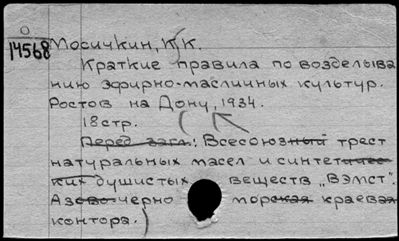 14568 Мосичкин, К.К.
Краткие правила по возделыва
нию эфирно-масличных культур.
Ростов на Дону, 1934.
18 стр.
(Перед загл.: Всесоюзный трест
натуральных масел и синтетичес-
ких душистых веществ „ВЭМСТ".
Азовочерно морская краевая
контора.)